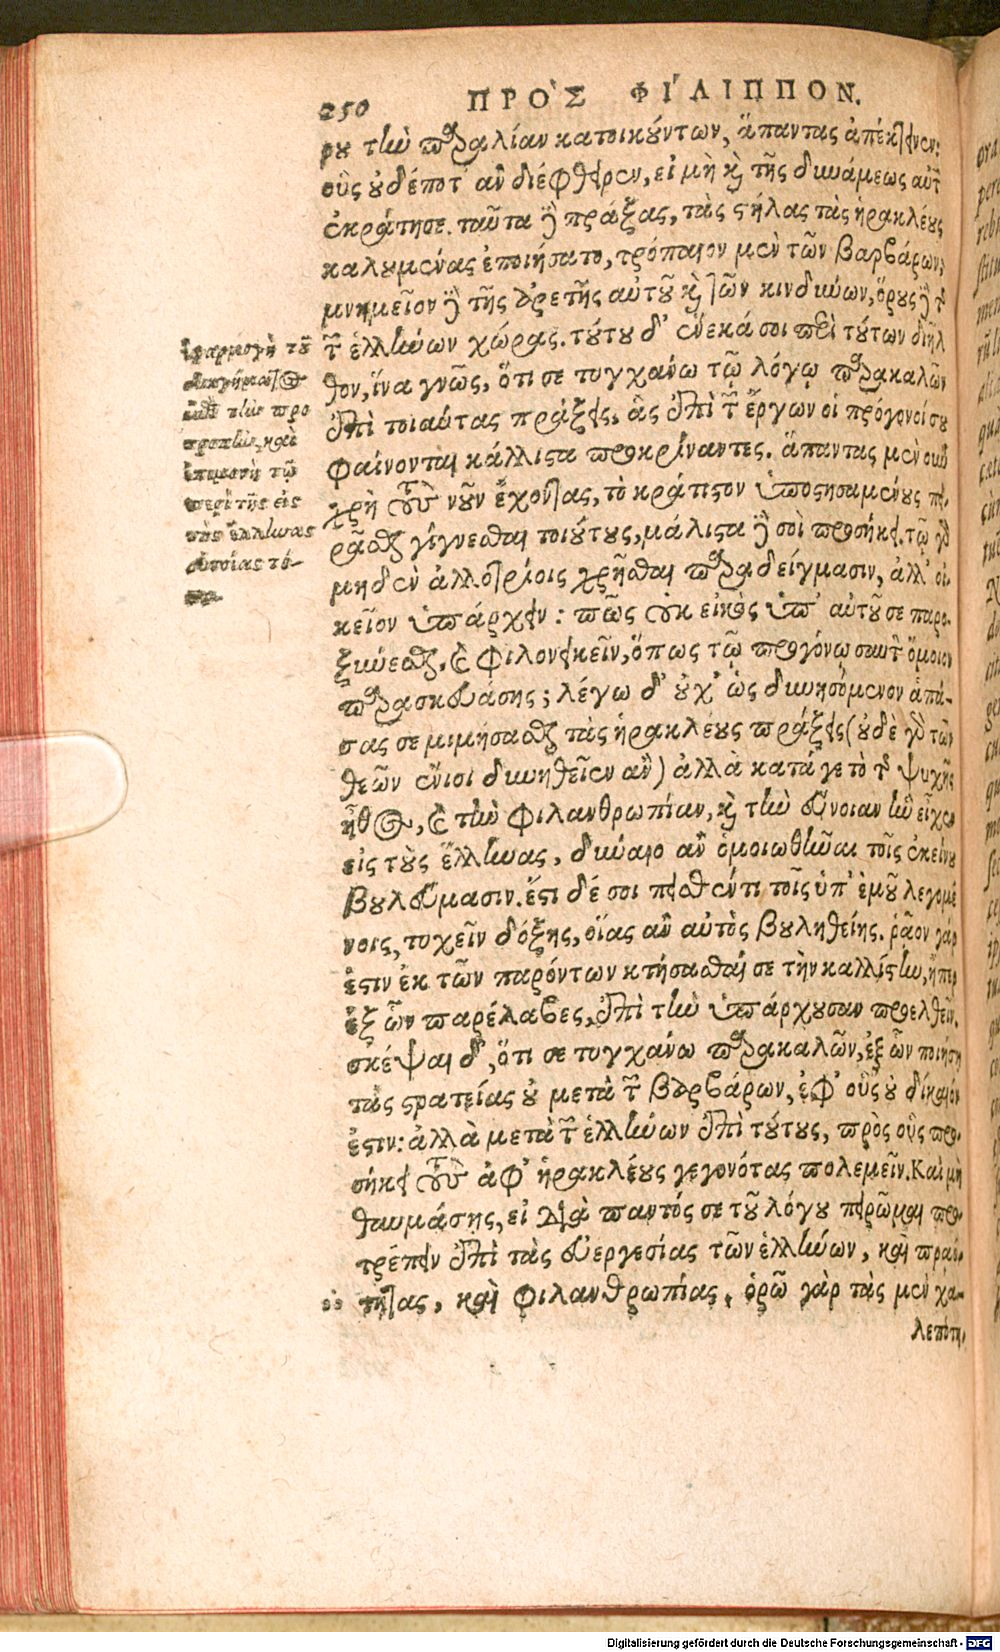 250 ΠΡΟ᾽Σ ΦΙ΄ΛΙΠΠΟΝ.
ρου τὴν παραλίαν κατοικούντων, ἅπαντας ἀπέκτεινεν:
οὓς οὐδέποτ᾽ ἂν διέφθειρεν, εἰ μὴ καὶ τῆς δυνάμεως αὐτῶν
ἐκράτησε. ταῦτα δὲ πράξας, τὰς στήλας τὰς ἡρακλέους
καλουμένας ἐποιήσατο, τρόπαιον μὲν τῶν βαρβάρων,
μνημεῖον δὲ τῆς ἀρετῆς αὐτοῦ καὶ τῶν κινδύνων, ὅρους δὲ τῆς
τῶν ἑλλήνων χώρας. τούτου δ᾽ ἕνεκά σοι περὶ τούτων διῆλ
θον, ἵνα γνῷς, ὅτι σε τυγχάνω τῷ λόγῳ παρακαλῶν
ἐπὶ τοιαύτας πράξεις, ἃς ἐπὶ τῶν ἔργων οἱ πρόγονοί σου
φαίνονται κάλλιστα προκρίναντες. ἅπαντας μὲν οὖν
χρὴ τοὺς νοῦν ἔχοντας, τὸ κράτιστον ὑποστησαμένους πει
ρᾶσθαι γίγνεσθαι τοιούτους, μάλιστα δὲ σοὶ προσήκει. τῷ γὰρ
μηδὲν ἀλλοτρίοις χρῆσθαι παραδείγμασιν, ἀλλ᾽ οἰ-
κεῖον ὑπάρχειν: πῶς οὐκ εἰκὸς ὑπ᾽ αὐτοῦ σε παρο-
ξύνεσθαι, καὶ φιλονεικεῖν, ὅπως τῷ προγόνῳ σαυτὸν ὅμοιον
παρασκευάσῃς; λέγω δ᾽ οὐχ᾽ ὡς δυνησόμενον ἁπά-
σας σε μιμήσασθαι τὰς ἡρακλέους πράξεις (οὐδὲ γὰρ τῶν
θεῶν ἔνιοι δυνηθεῖεν ἂν) ἀλλὰ κατά γε τὸ τῆς ψυχῆς
ἦθος, καὶ τὴν φιλανθρωπίαν, καὶ τὴν εὔνοιαν ἣν εἶχεν
εἰς τοὺς ἕλληνας, δύναιο ἂν ὁμοιωθῆναι τοῖς ἐκείνου
βουλεύμασιν. ἔστι δέ σοι πεισθέντι τοῖς ὑπ᾽ ἐμοῦ λεγομέ
νοις, τυχεῖν δόξης, οἵας ἂν αὐτὸς βουληθείης. ῥᾷον γάρ
ἐστιν ἐκ τῶν παρόντων κτήσασθαί σε τὴν καλλίστην, ἤπερ
ἐξ ὧν παρέλαβες, ἐπὶ τὴν ὑπάρχουσαν προελθεῖν.
σκέψαι δ᾽, ὅτι σε τυγχάνω παρακαλῶν, ἐξ ὧν ποιήσῃ
τὰς στρατείας οὐ μετὰ τῶν βαρβάρων, ἐφ᾽ οὓς οὐ δίκαιόν
ἐστιν: ἀλλὰ μετὰ τῶν ἑλλήνων ἐπὶ τούτους, πρὸς οὓς προ-
σήκει τοὺς ἀφ᾽ ἡρακλέους γεγονότας πολεμεῖν. Καὶ μὴ
θαυμάσῃς, εἰ διὰ παντός σε τοῦ λόγου πειρῶμαι προ-
τρέπειν ἐπὶ τὰς εὐεργεσίας τῶν ἑλλήνων, καὶ πραό-
τητας, καὶ φιλανθρωπίας. ὁρῶ γὰρ τὰς μὲν χα-
λεπότη-
ἐφαρμογὴ τοῦ
διηγήματος
τὴν προ
τροπὴν, καὶ
ἐπιμονὴ τῷ
περὶ τῆς εἰς
τοὺς ἕλληνας
εὐνοίας τό-
Digitalisierung gefördert durch die Deutsche Forschungsgemeinschaft - DFG